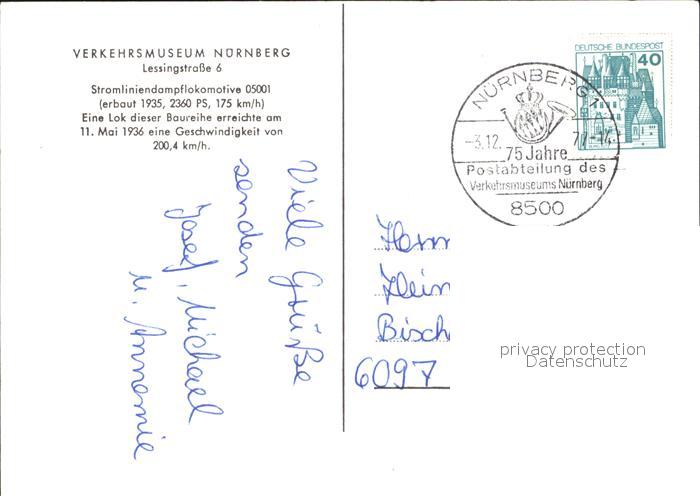 VERKEHRSMUSEUM NÜRNBERG
Lessingstraße 6
Stromliniendampflokomotive 05001
(erbaut 1935, 2360 PS, 175 km/h)
Eine Lok dieser Baureihe erreichte am
11. Mai 1936 eine Geschwindigkeit von
200,4 km/h.
Viele Grüße
senden
Josef, Michael
u. Annemie
DEUTSCHE BUNDESPOST
40
NÜRNBERG
-3.12. 77-14
75 Jahre
Postabteilung des
Verkehrsmuseums Nürnberg
8500
Herrn
Hein
Bisch
6097
privacy protection
Datenschutz